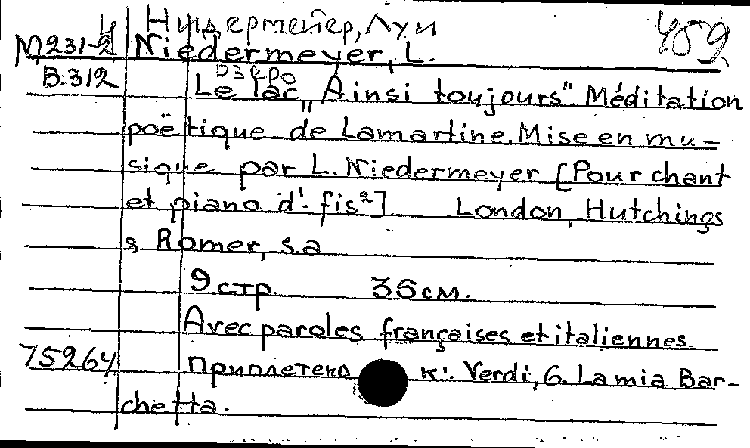 Нидермейер, Луи 459
М231-2 Niedermeyer, L.
В.312 озеро
Le lac "Ainsi toujours". Méditation
poëtique de Lamartine. Mise en mu-
sique par L. Niedermeyer [Pour chant
et piano d'- fis²] London, Hutchings
& Romer, s.a
9 стр 36 см.
Avec paroles françaises et italiennes.
75264 Приплетено к: Verdi, G. La mia Bar-
chetta.